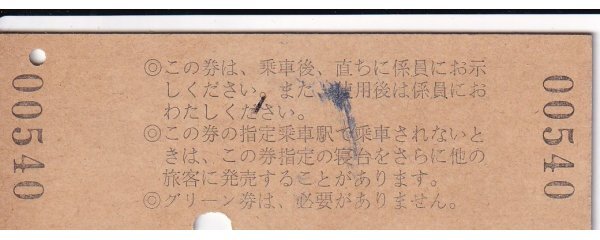 00540
◎この券は、乗車後、直ちに係員にお示
しください。また、使用後は係員にお
わたしください。
◎この券の指定乗車駅で乗車されないと
きは、この券指定の寝台をさらに他の
旅客に発売することがあります。
◎グリーン券は、必要がありません。
00540